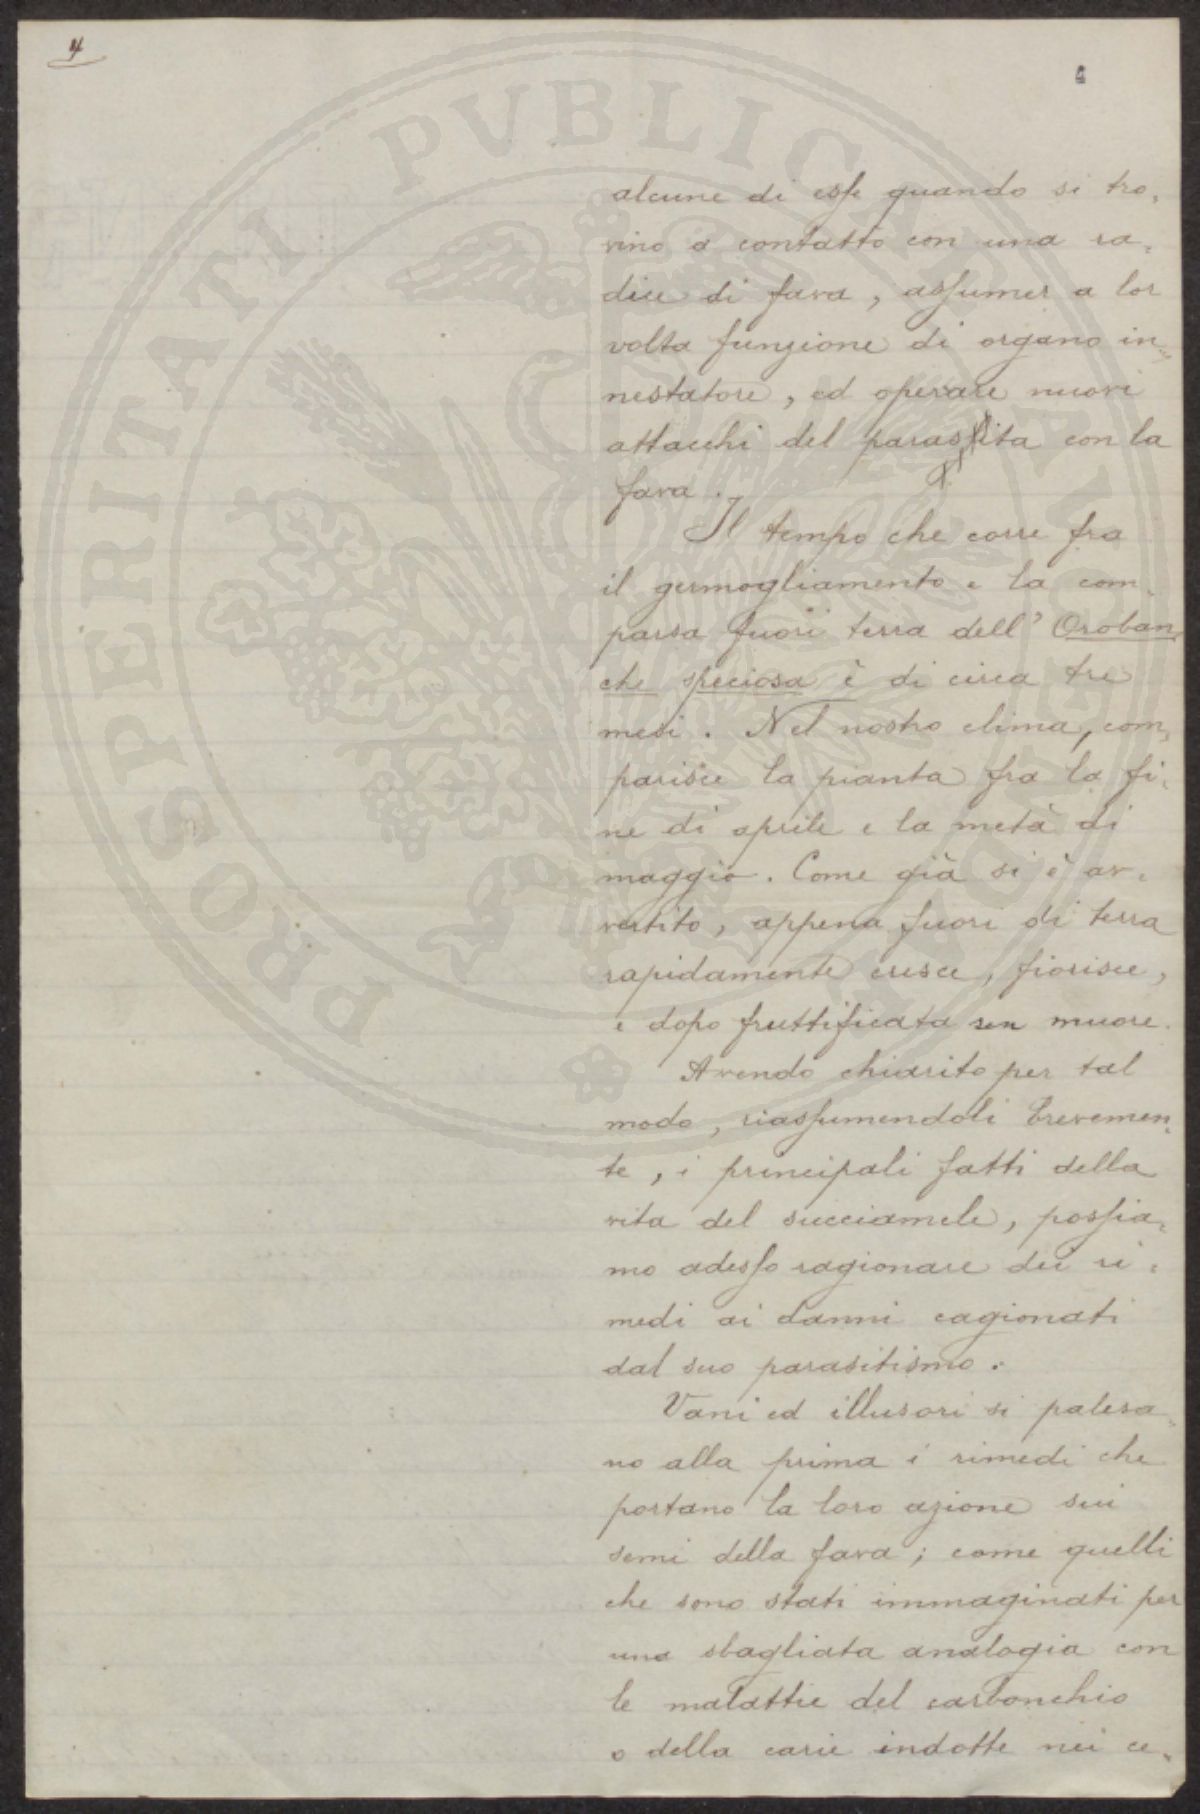 4
PROSPERITATI PVBLICAE AVGENDAE
alcune di esse quando si tro„
vino a contatto con una ra„
dice di fava, assumer a lor
volta funzione di organo in„
nestatore, ed operare nuovi
attacchi del parassita con la
fava.
Il tempo che corre fra
il germogliamento e la com„
parsa fuori terra dell' Oroban„
che speciosa è di circa tre
mesi. Nel nostro clima, com„
parisce la pianta fra la fi„
ne di aprile e la metà di
maggio. Come già si è av„
vertito, appena fuori di terra
rapidamente cresce, fiorisce,
e dopo fruttificata sen muore.
Avendo chiarito per tal
modo, riassumendoli brevemen„
te, i principali fatti della
vita del succiamele, possia„
mo adesso ragionare dei ri„
medi ai danni cagionati
dal suo parasitismo.
Vani ed illusori si palesa„
no alla prima i rimedi che
portano la loro azione sui
semi della fava; come quelli
che sono stati immaginati per
una sbagliata analogia con
le malattie del carbonchio
o della carie indotte nei ce„